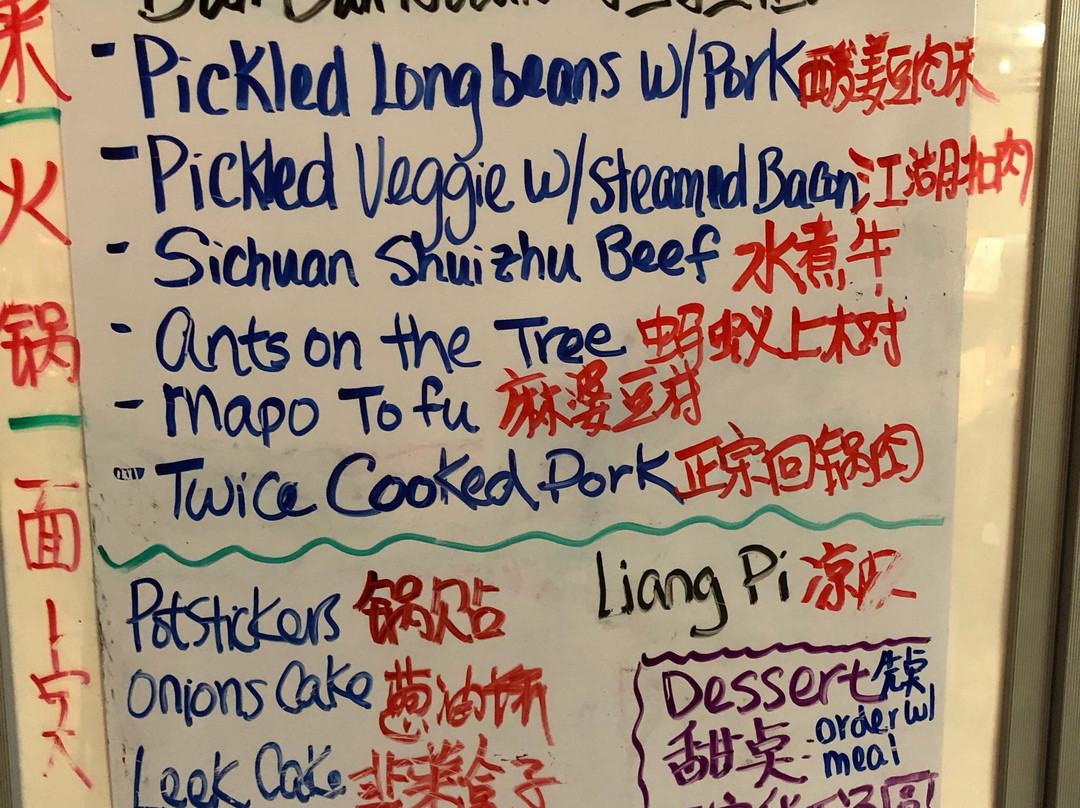 - Pickled Longbeans w/Pork 酸姜豆肉末
- Pickled Veggie w/Steamed Bacon 江湖扣肉
- Sichuan Shuizhu Beef 水煮牛
- Ants on the Tree 蚂蚁上树
- Mapo Tofu 麻婆豆腐
- Twice Cooked Pork 正宗回锅肉
Potstickers 锅贴
Onions Cake 葱油饼
Leek Cake 韭菜盒子
Liang Pi 凉皮
Dessert 先点
甜点 order w/
meal
火
锅
面